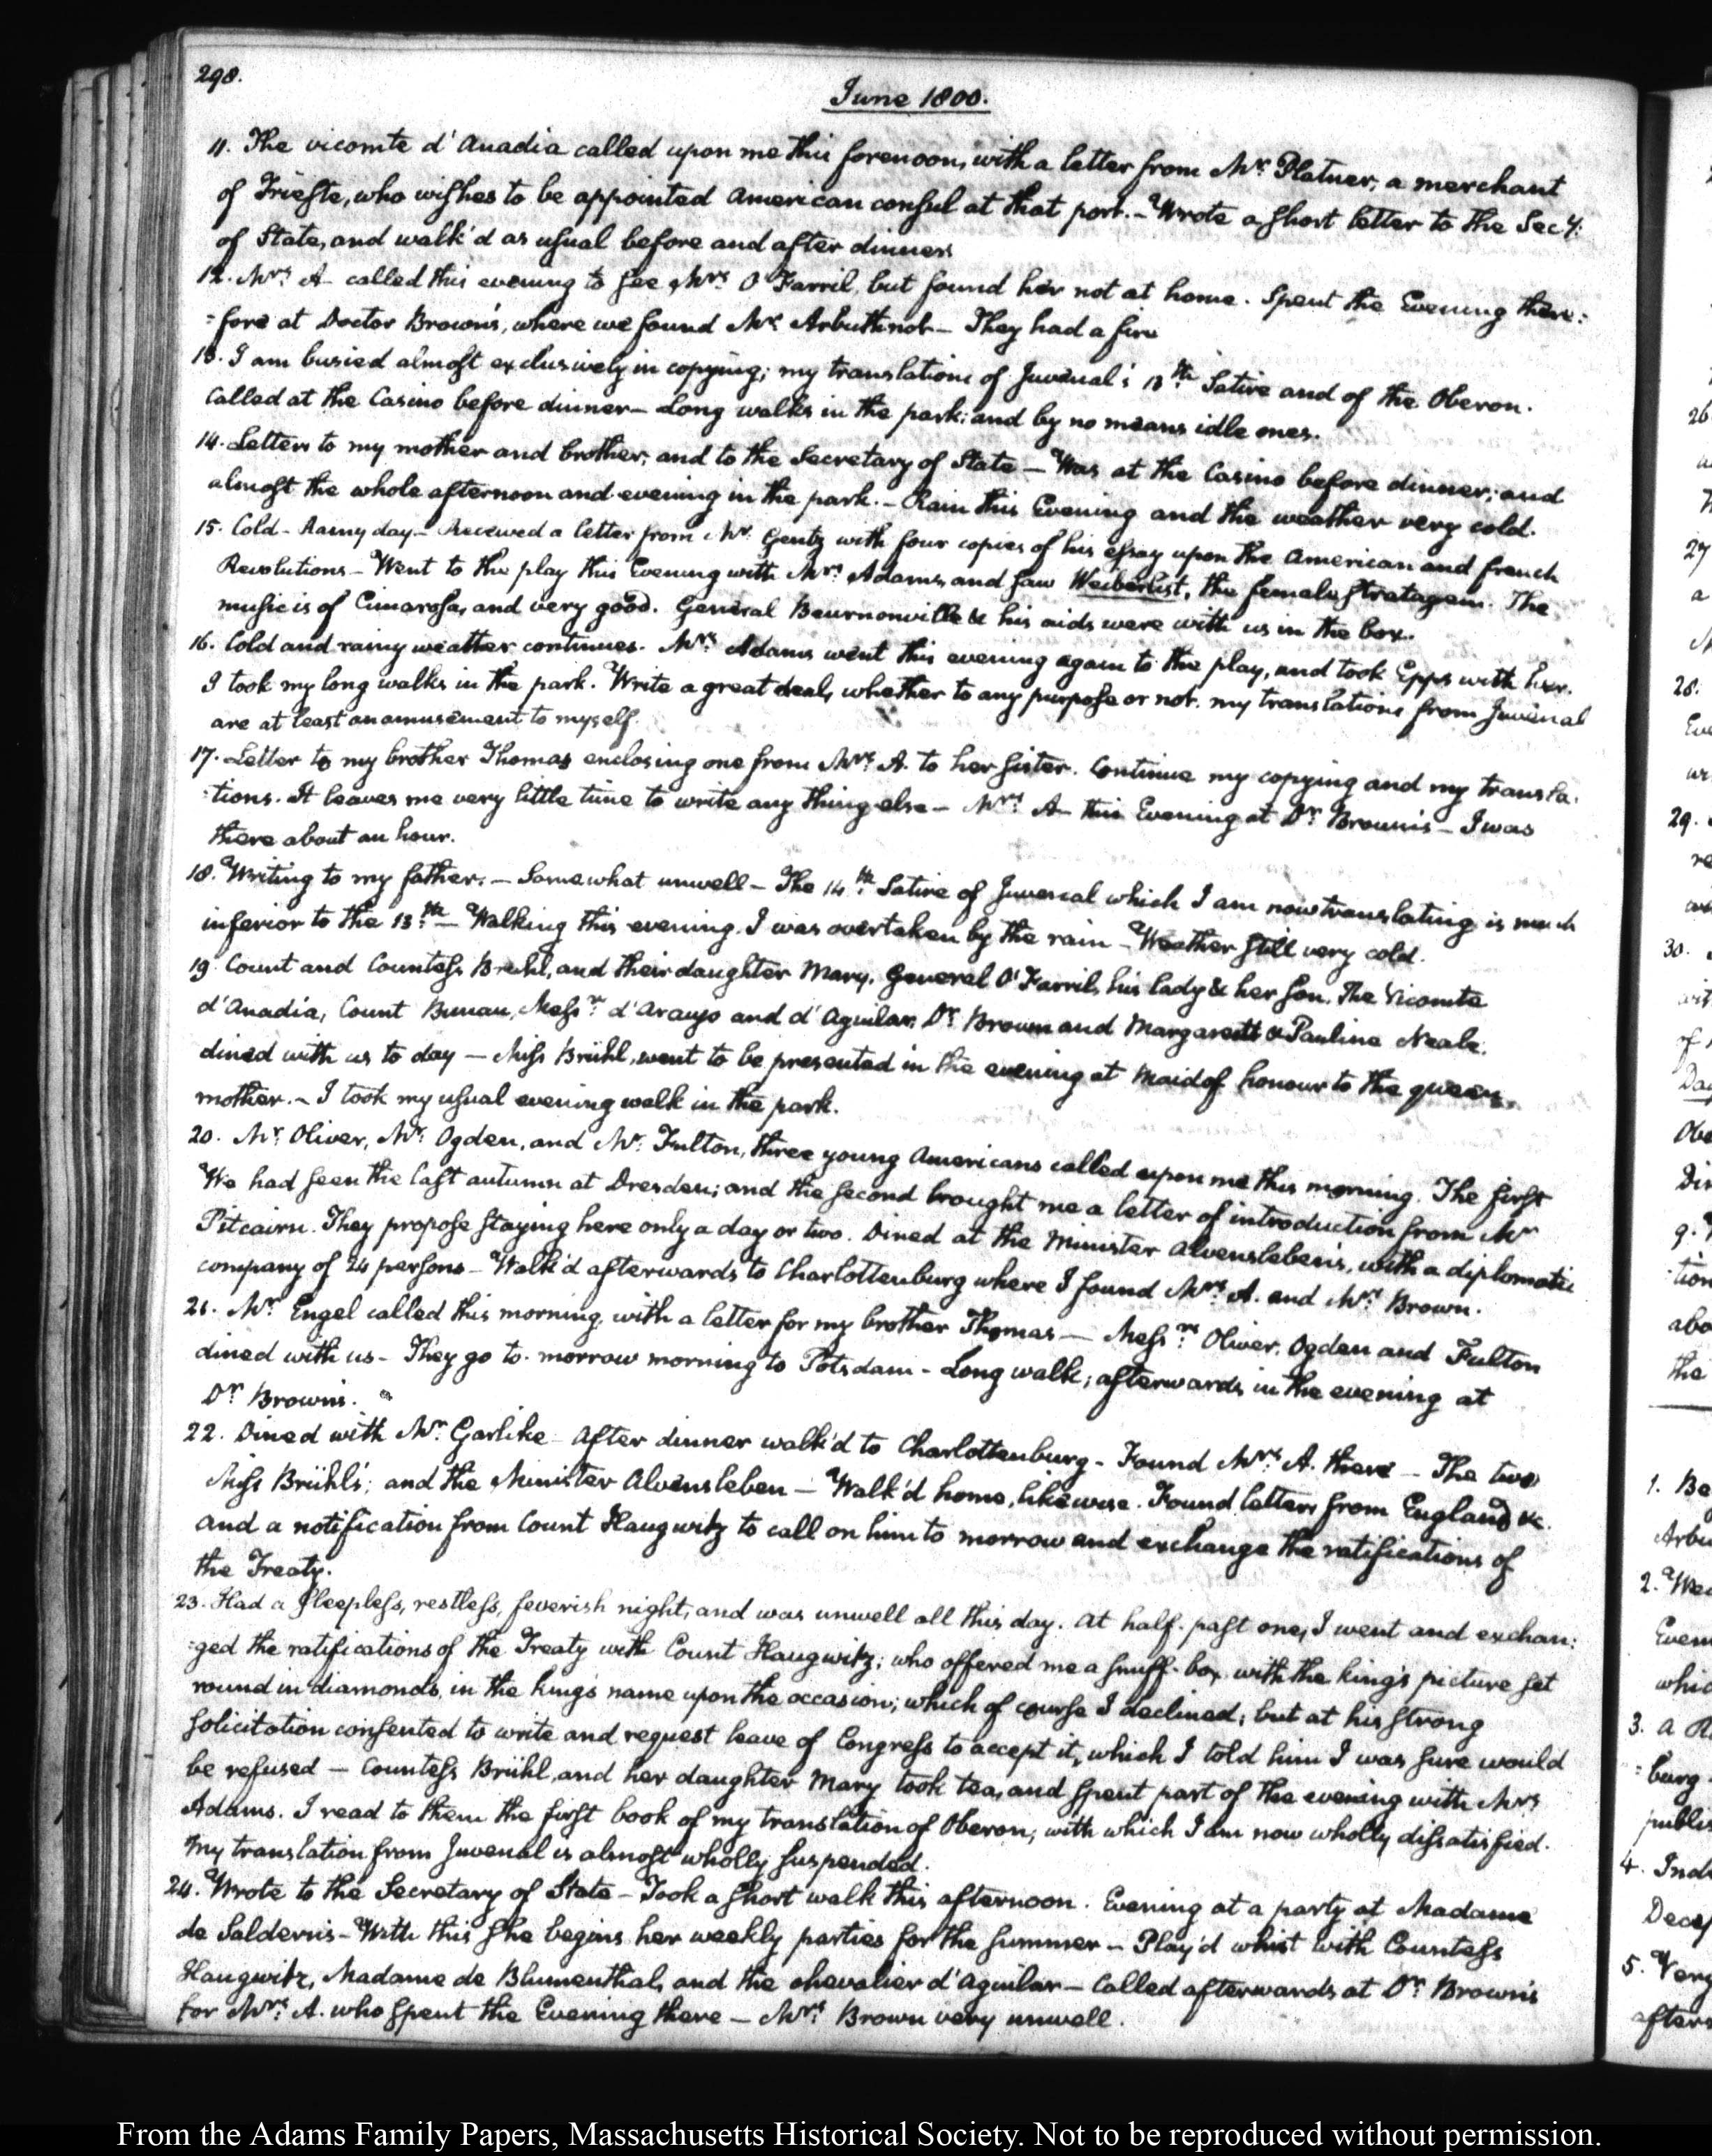 298.
June 1800.
11. The vicomte d'Anadia called upon me this forenoon, with a letter from Mr. Platner, a merchant
of Trieste, who wishes to be appointed American consul at that port. — Wrote a short letter to the Secy.
of State, and walk'd as usual before and after dinner.
12. Mrs. A— called this evening to see Mrs. O'Farril, but found her not at home. Spent the Evening there:
=fore at Doctor Brown's, where we found Mr. Arbuthnot — They had a fire
13. I am busied almost exclusively in copying; my translations of Juvenal's 13th. Satire and of the Oberon.
Called at the Casino before dinner — Long walks in the park: and by no means idle ones.
14. Letters to my mother and brother; and to the Secretary of State — Was at the Casino before dinner; and
almost the whole afternoon and evening in the park. — Rain this Evening and the weather very cold.
15. Cold — Rainy day — Received a letter from Mr. Gentz with four copies of his essay upon the American and french
Revolutions — Went to the play this Evening with Mrs. Adams, and saw Weiberlist, the female stratagem. The
music is of Cimarosa, and very good. General Beurnonville & his aids were with us in the box.
16. Cold and rainy weather continues. Mrs. Adams went this evening again to the play, and took Epps with her.
I took my long walks in the park. Write a great deal, whether to any purpose or not. my translations from Juvenal
are at least an amusement to myself.
17. Letter to my brother Thomas enclosing one from Mrs. A. to her sister. Continue my copying and my transla:
:tions. It leaves me very little time to write any thing else — Mrs. A— this Evening at Dr. Brown's — I was
there about an hour.
18. Writing to my father. — Somewhat unwell — The 14th. Satire of Juvenal which I am now translating is much
inferior to the 13th. — Walking this evening I was overtaken by the rain — Weather still very cold.
19. Count and Countess Brühl, and their daughter Mary, General O'Farril, his lady & her son, The Vicomte
d'Anadia, Count Bunau, Messrs. d'Araujo and d'Aguilar, Dr. Brown and Margaret & Pauline Neale,
dined with us to day — Miss Brühl, went to be presented in the evening at Maid of honour to the queen
mother. — I took my usual evening walk in the park.
20. Mr. Oliver, Mr. Ogden, and Mr. Fulton, three young Americans called upon me this morning. The first
We had seen the last autumn at Dresden; and the second brought me a letter of introduction from Mr
Pitcairn. They propose staying here only a day or two. Dined at the Minister Alvensleben's, with a diplomatic
company of 24 persons — Walk'd afterwards to Charlottenburg where I found Mrs. A. and Mrs. Brown.
21. Mr. Engel called this morning, with a letter for my brother Thomas — Messrs. Oliver, Ogden and Fulton
dined with us — They go to-morrow morning to Potsdam — Long walk; afterwards in the evening at
Dr. Brown's.
22. Dined with Mr. Garlike — After dinner walk'd to Charlottenburg — Found Mrs. A. there — The two
Miss Brühl's; and the Minister Alvensleben — Walk'd home, likewise. Found letters from England &c.
and a notification from Count Haugwitz to call on him to morrow and exchange the ratifications of
the Treaty.
23. Had a sleepless, restless, feverish night, and was unwell all this day. At half-past one, I went and exchan:
:ged the ratifications of the Treaty with Count Haugwitz; who offered me a snuff-box, with the king's picture set
round in diamonds, in the king's name upon the occasion; which of course I declined; but at his strong
solicitation consented to write and request leave of Congress to accept it, which I told him I was sure would
be refused — Countess Brühl, and her daughter Mary took tea, and spent part of the evening with Mrs
Adams. I read to them the first book of my translation of Oberon, with which I am now wholly dissatisfied.
My translation from Juvenal is almost wholly suspended.
24. Wrote to the Secretary of State — Took a short walk this afternoon. Evening at a party at Madame
de Saldern's — With this she begins her weekly parties for the summer — Play'd whist with Countess
Haugwitz, Madame de Blumenthal, and the chevalier d'Aguilar — Called afterwards at Dr. Brown's
for Mrs. A. who spent the Evening there — Mrs. Brown very unwell.
From the Adams Family Papers, Massachusetts Historical Society. Not to be reproduced without permission.